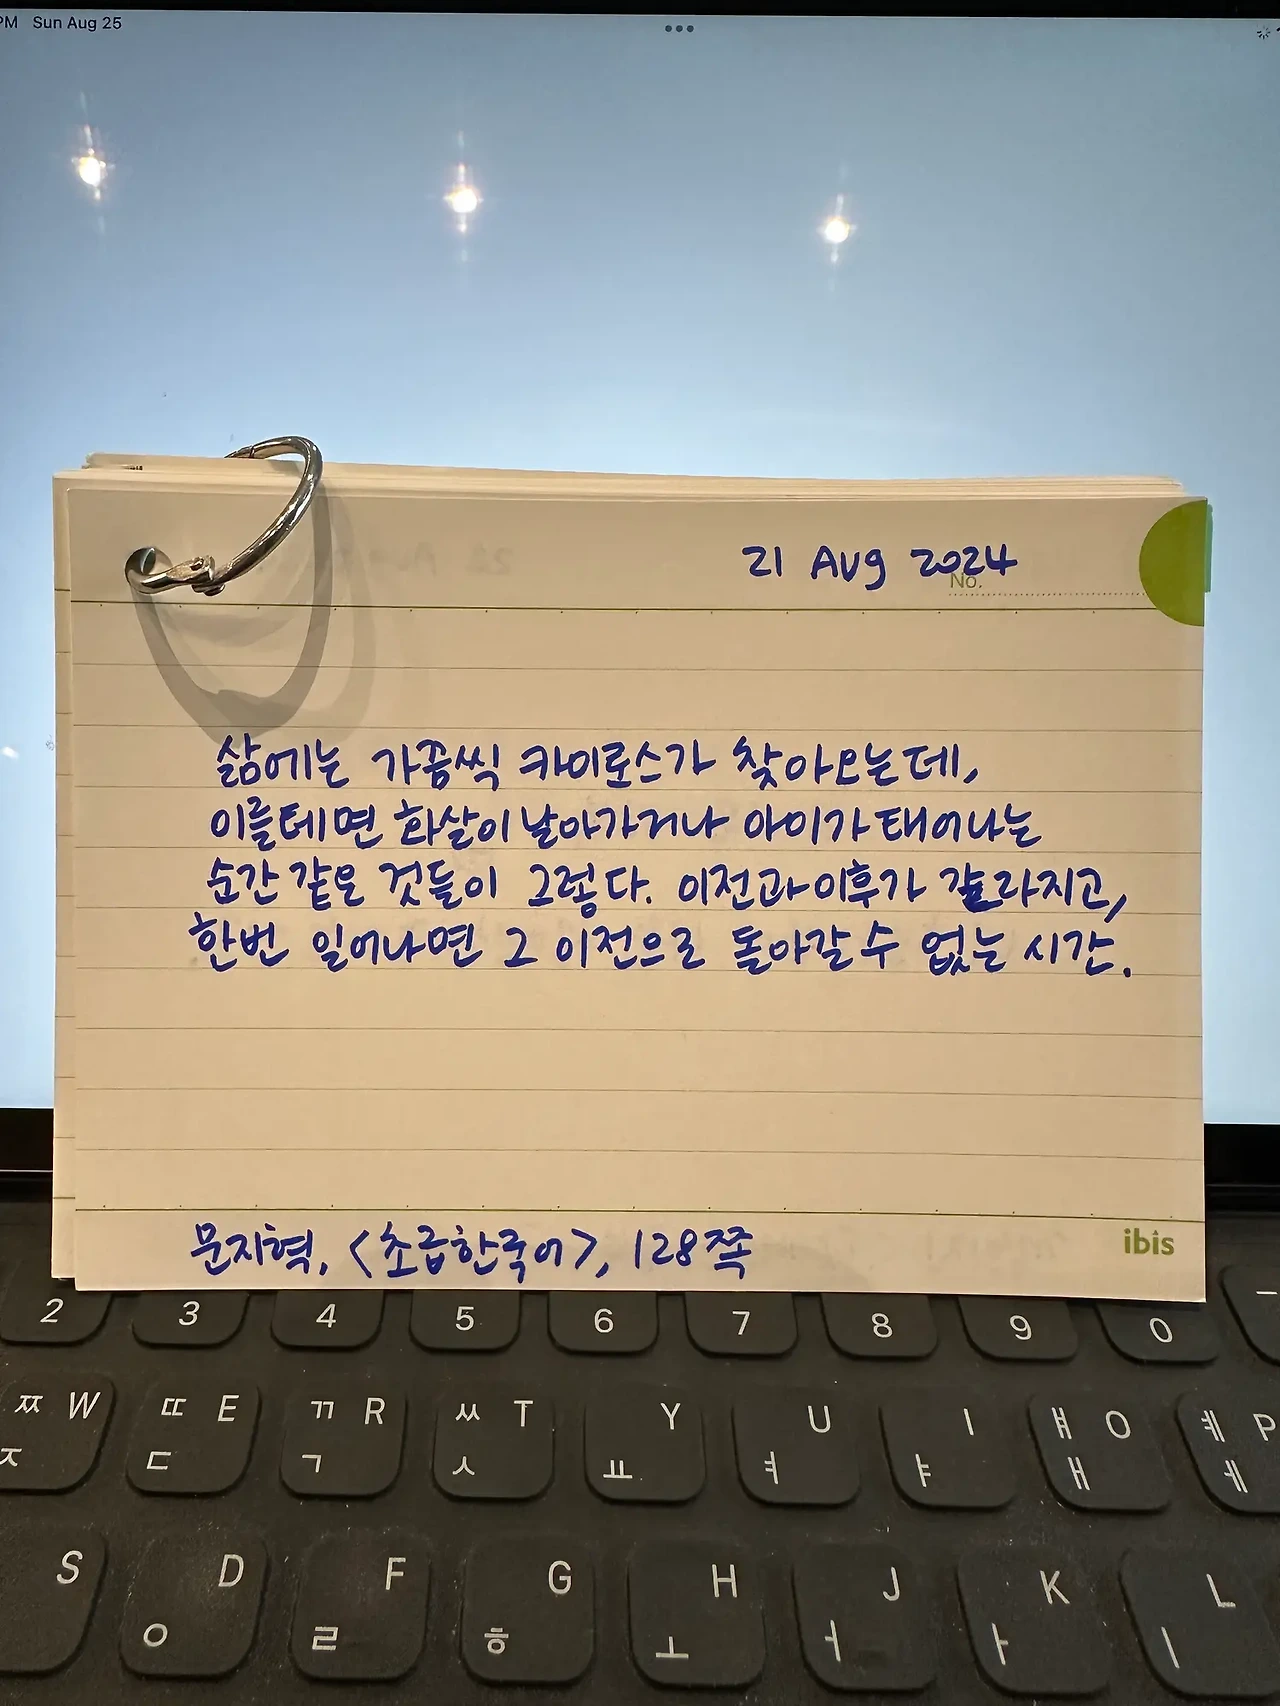 PM Sun Aug 25
21 Aug 2024
No.
삶에는 가끔씩 카이로스가 찾아오는데,
이를테면 화살이 날아가거나 아이가 태어나는
순간 같은 것들이 그렇다. 이전과 이후가 갈라지고,
한번 일어나면 그 이전으로 돌아갈 수 없는 시간.
문지혁, <초급한국어>, 128쪽
ibis
2 3 4 5 6 7 8 9 0 -
ㅉ W ㄸ E ㄲ R ㅆ T Y U I ㅒ O ㅖ P
ㅈ ㄷ ㄱ ㅅ ㅛ ㅕ ㅑ ㅐ ㅔ
S D F G H J K L
ㅇ ㄹ ㅎ ㅗ ㅓ ㅏ ㅣ